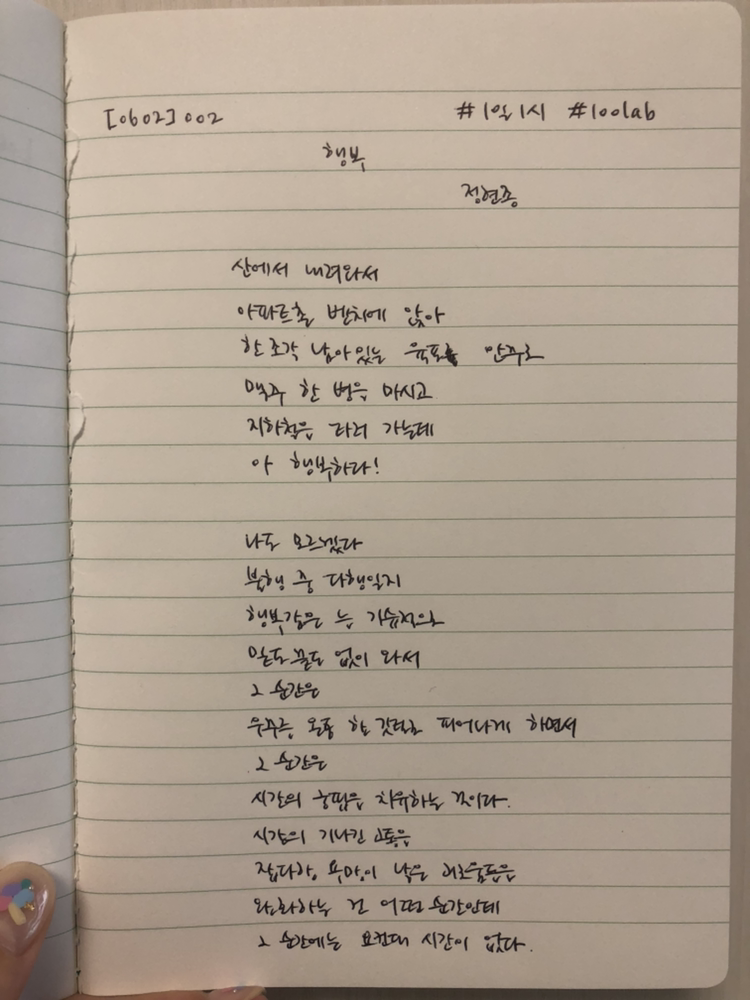 [0602] 002 #1일1시 #100lab
행복
정현종
산에서 내려와서
아파트촌 벤치에 앉아
한 조각 남아있는 육포를 안주로
맥주 한 병을 마시고
지하철을 타러 가는데
아 행복하다!
나도 모르겠다
불행 중 다행일지
행복감은 늘 기습적으로
밑도 끝도 없이 와서
그 순간은
우주를 온통 한 깃털로 피어나게 하면서
그 순간은
시간의 궁핍을 치유하는 것이다.
시간의 기나긴 고통을
잡다한 욕망이 낳은 괴로움들을
완화하는 건 어떤 순간인데
그 순간에는 요컨대 시간이 없다.